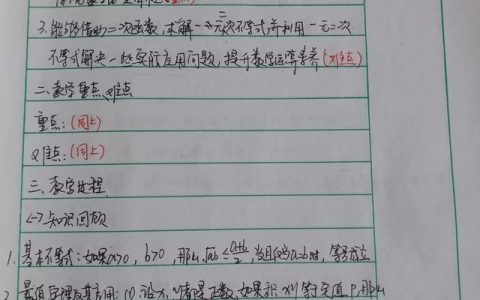 3.能够借助二次函数,求解一元二次不等式,并利用一元二次
不等式解决一些实际应用问题,提升数学运算素养(难点)
二、教学重点、难点
重点:(同上)
难点:(同上)
三、教学过程
(一)知识回顾
1.基本不等式:如果a>0,b>0,那么√ab≤(a+b)/2,当且仅当a=b时,等号成立
2.最值定理及其应用:(1)设x,y都是正数,如果积xy等于定值P,那么